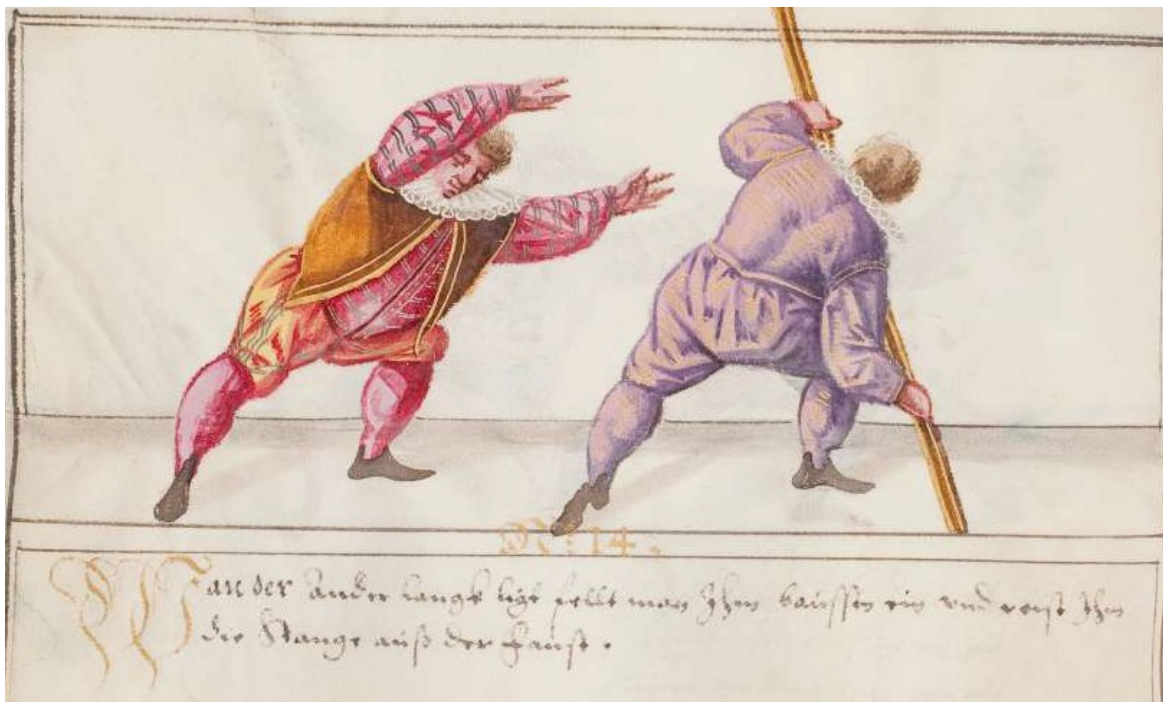 No: 14.
Wan der Ander langk ligt fellt man Ihm baussen ein vnd reist Ihm
die Stange auß der Faust.